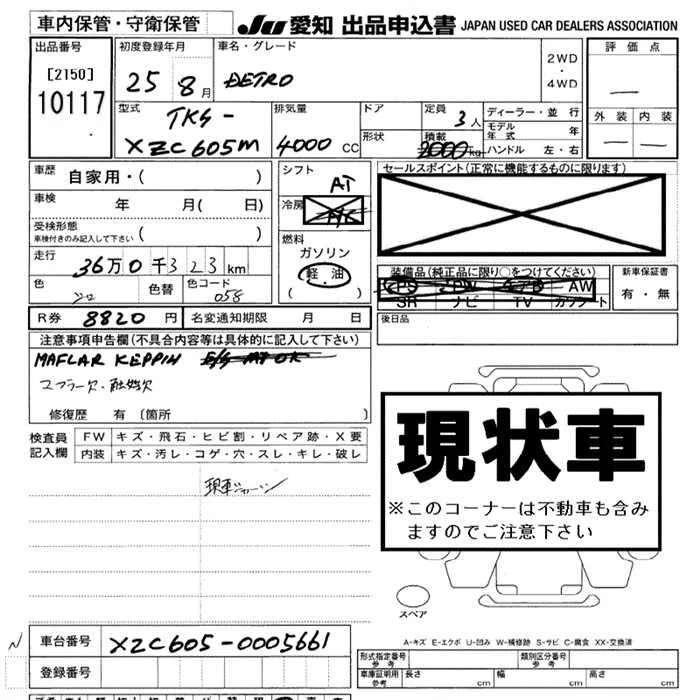 車内保管・守衛保管 JU 愛知 出品申込書 JAPAN USED CAR DEALERS ASSOCIATION
出品番号 初度登録年月 車名・グレード 評価点
[2150] 25 8月 DETRO 2WD・4WD
10117 型式 排気量 ドア 定員 3人 ディーラー・並行 外装 内装
TKG- 形状 積載 モデル年式 年
XZC605M 4000 CC 2000kg ハンドル 左・右
車歴 自家用・( ) シフト AT セールスポイント(正常に機能するものに限ります)
車検 年 月( 日) 冷房 A/C
受検形態 車検付きのみ記入して下さい ( ) 燃料
走行 36万0千323km ガソリン 装備品(純正品に限り○をつけてください) 新車保証書
軽・油 PS PW AW 有・無
色 シロ 色替 色コード 058 ( ) SR ナビ TV カワシート
R券 8820円 名変通知期限 月 日 後日品
注意事項申告欄(不具合内容等は具体的に記入して下さい)
MAFLAR KEPPIN
修復歴 有 [箇所 ] 現状車
検査員記入欄 FW キズ・飛石・ヒビ割・リペア跡・X要
内装 キズ・汚レ・コゲ・穴・スレ・キレ・破レ
※このコーナーは不動車も含みますのでご注意下さい
スペア
A-キズ E-エクボ U-凹み W-補修跡 S-サビ C-腐食 XX-交換済
N 車台番号 XZC605-0005661 形式指定番号 参考 類別区分番号 参考
登録番号 車庫証明用 参考 長さ cm 幅 cm 高さ cm